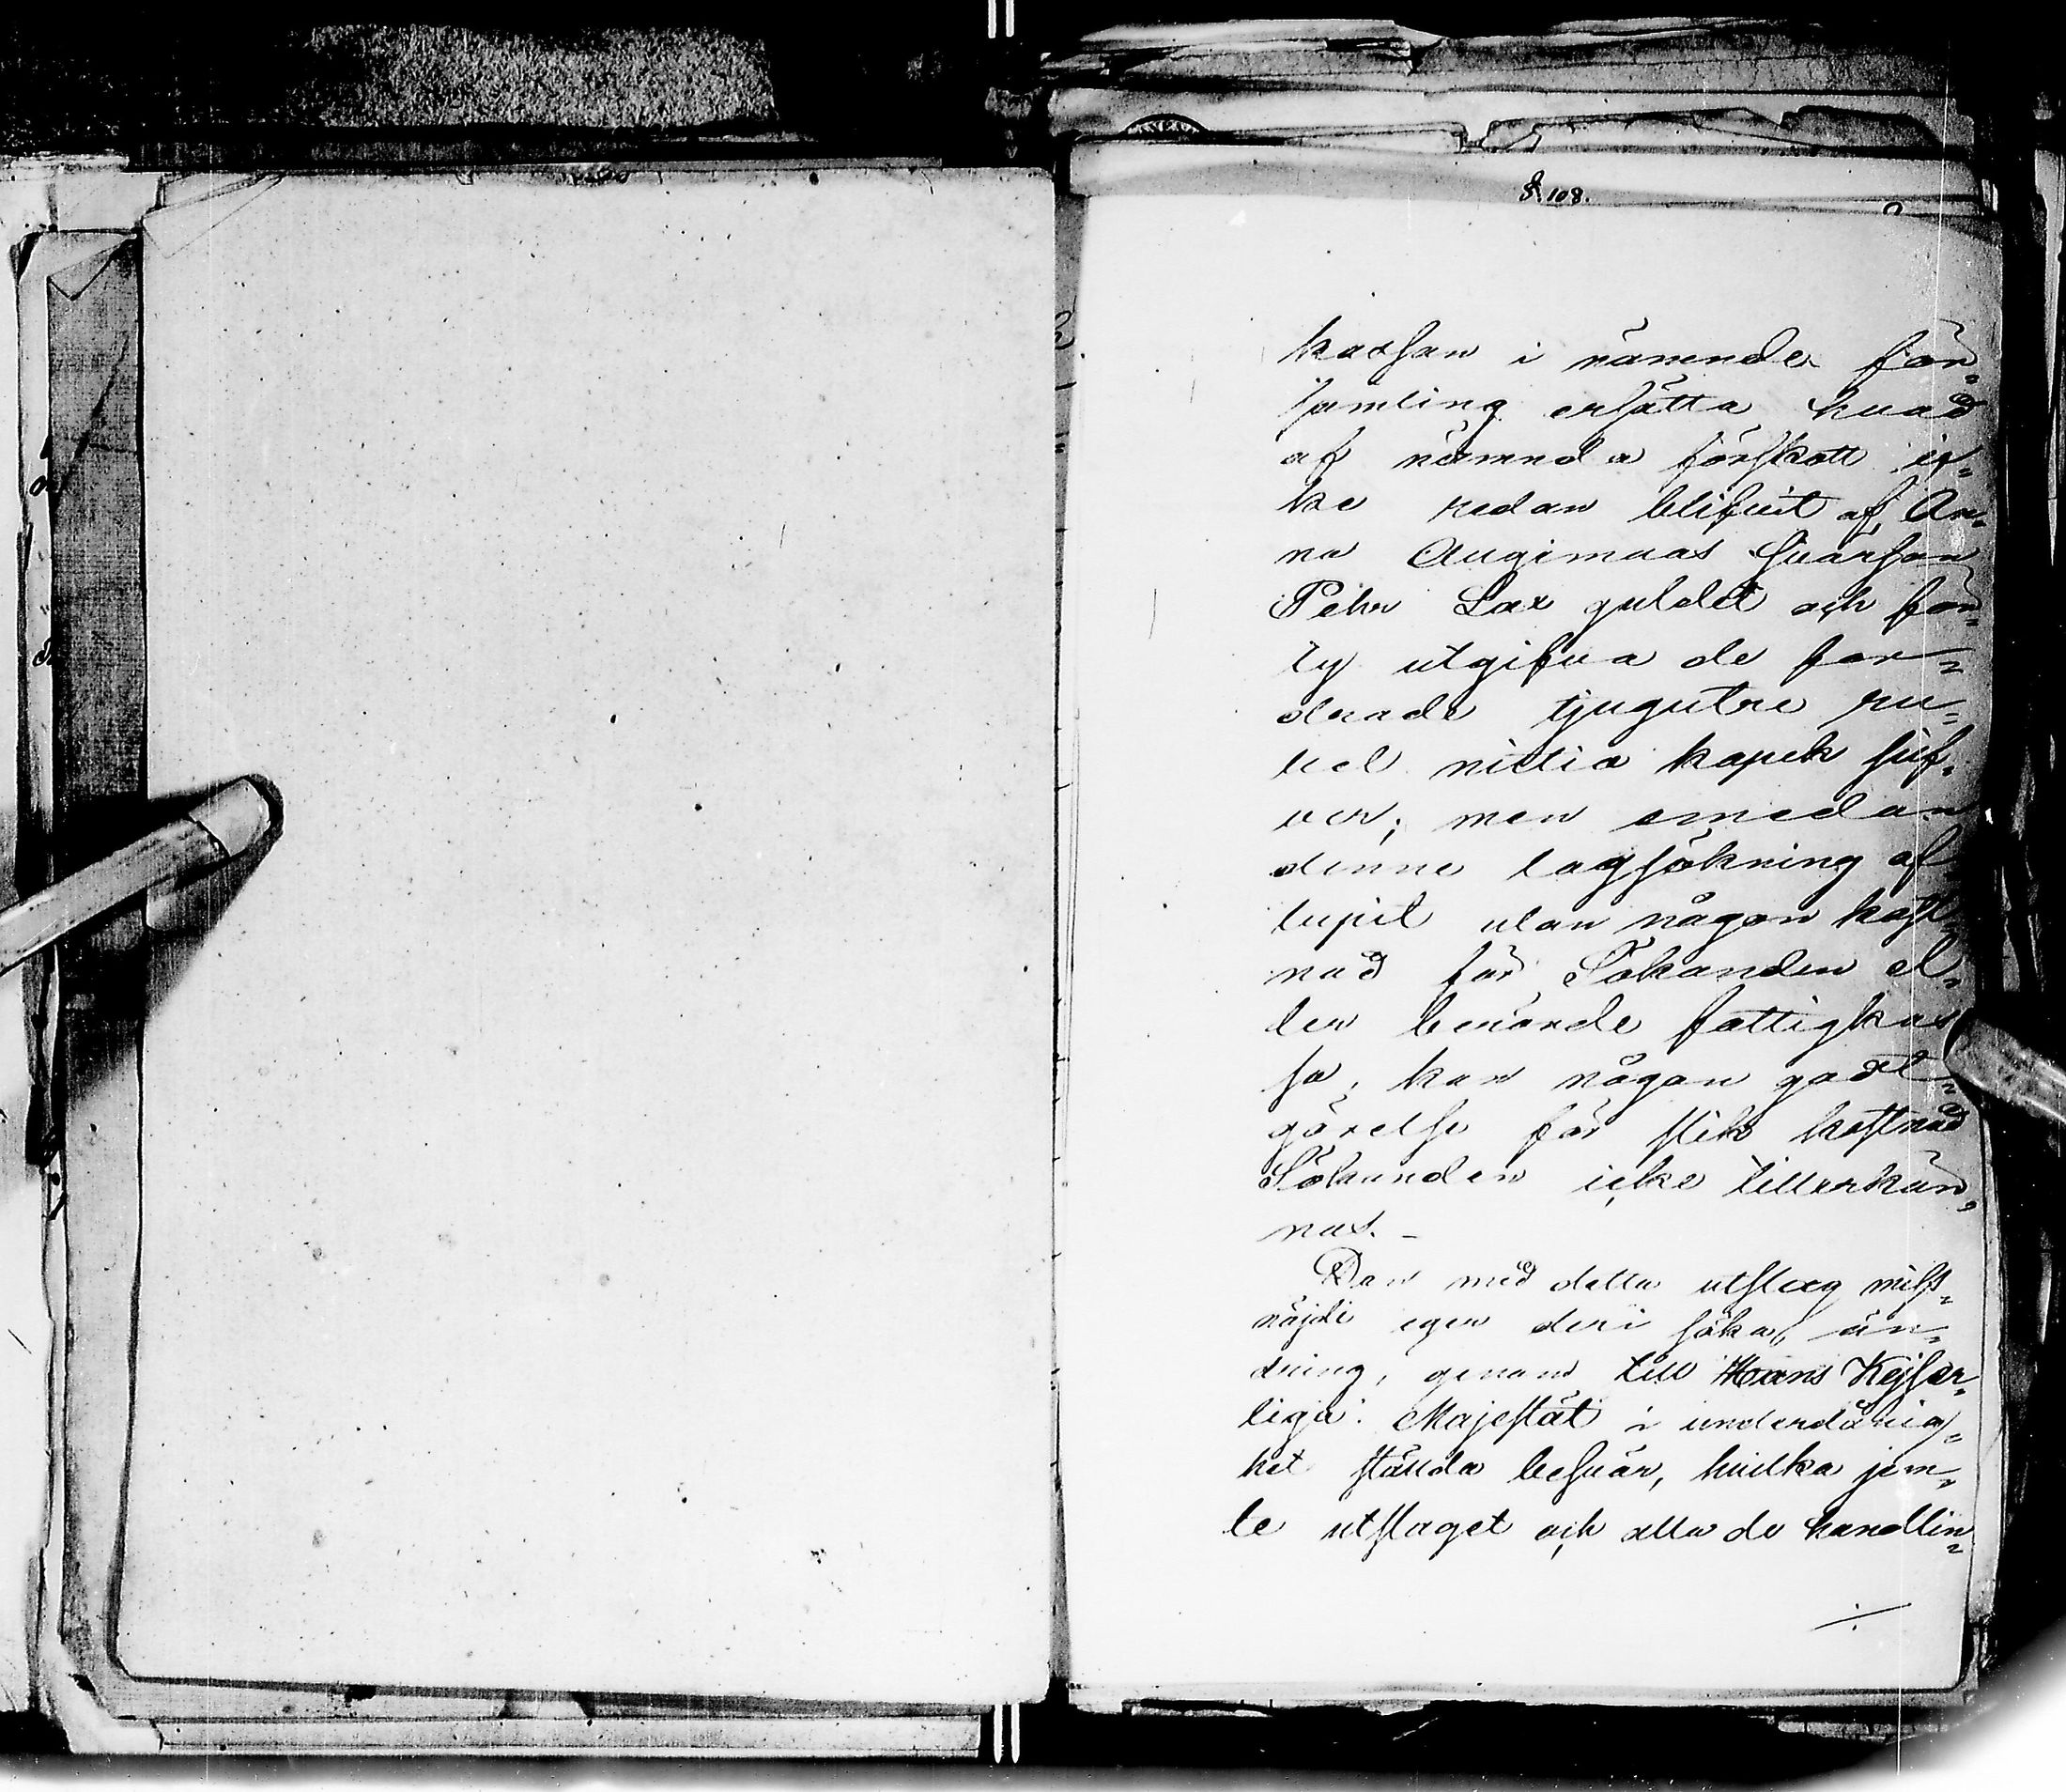 §. 108.
kassan i nämnde för-
samling ersätta hvad
af nämnda förskott ic-
ke redan blifvit af An-
na Augimaas svärson
Pehr Lax guldet och för-
ty utgifva de for-
drade tjugutre ru-
bel nittio kopek silf-
ver; men emedan
denne lagsökning af-
lupit utan någon kost-
nad för Sökanden el-
ler berörde fattigkas
sa, kan någon godt-
görelse för slik kostnad
Sökanden icke tillerkän-
nas. -
Den med detta utslag miss-
nöjde eger deri söka än-
dring, genom till Hans Kejser-
liga Majestät i underdånig-
het stälda besvär, hvilka jem-
te utslaget och alla de handlin-